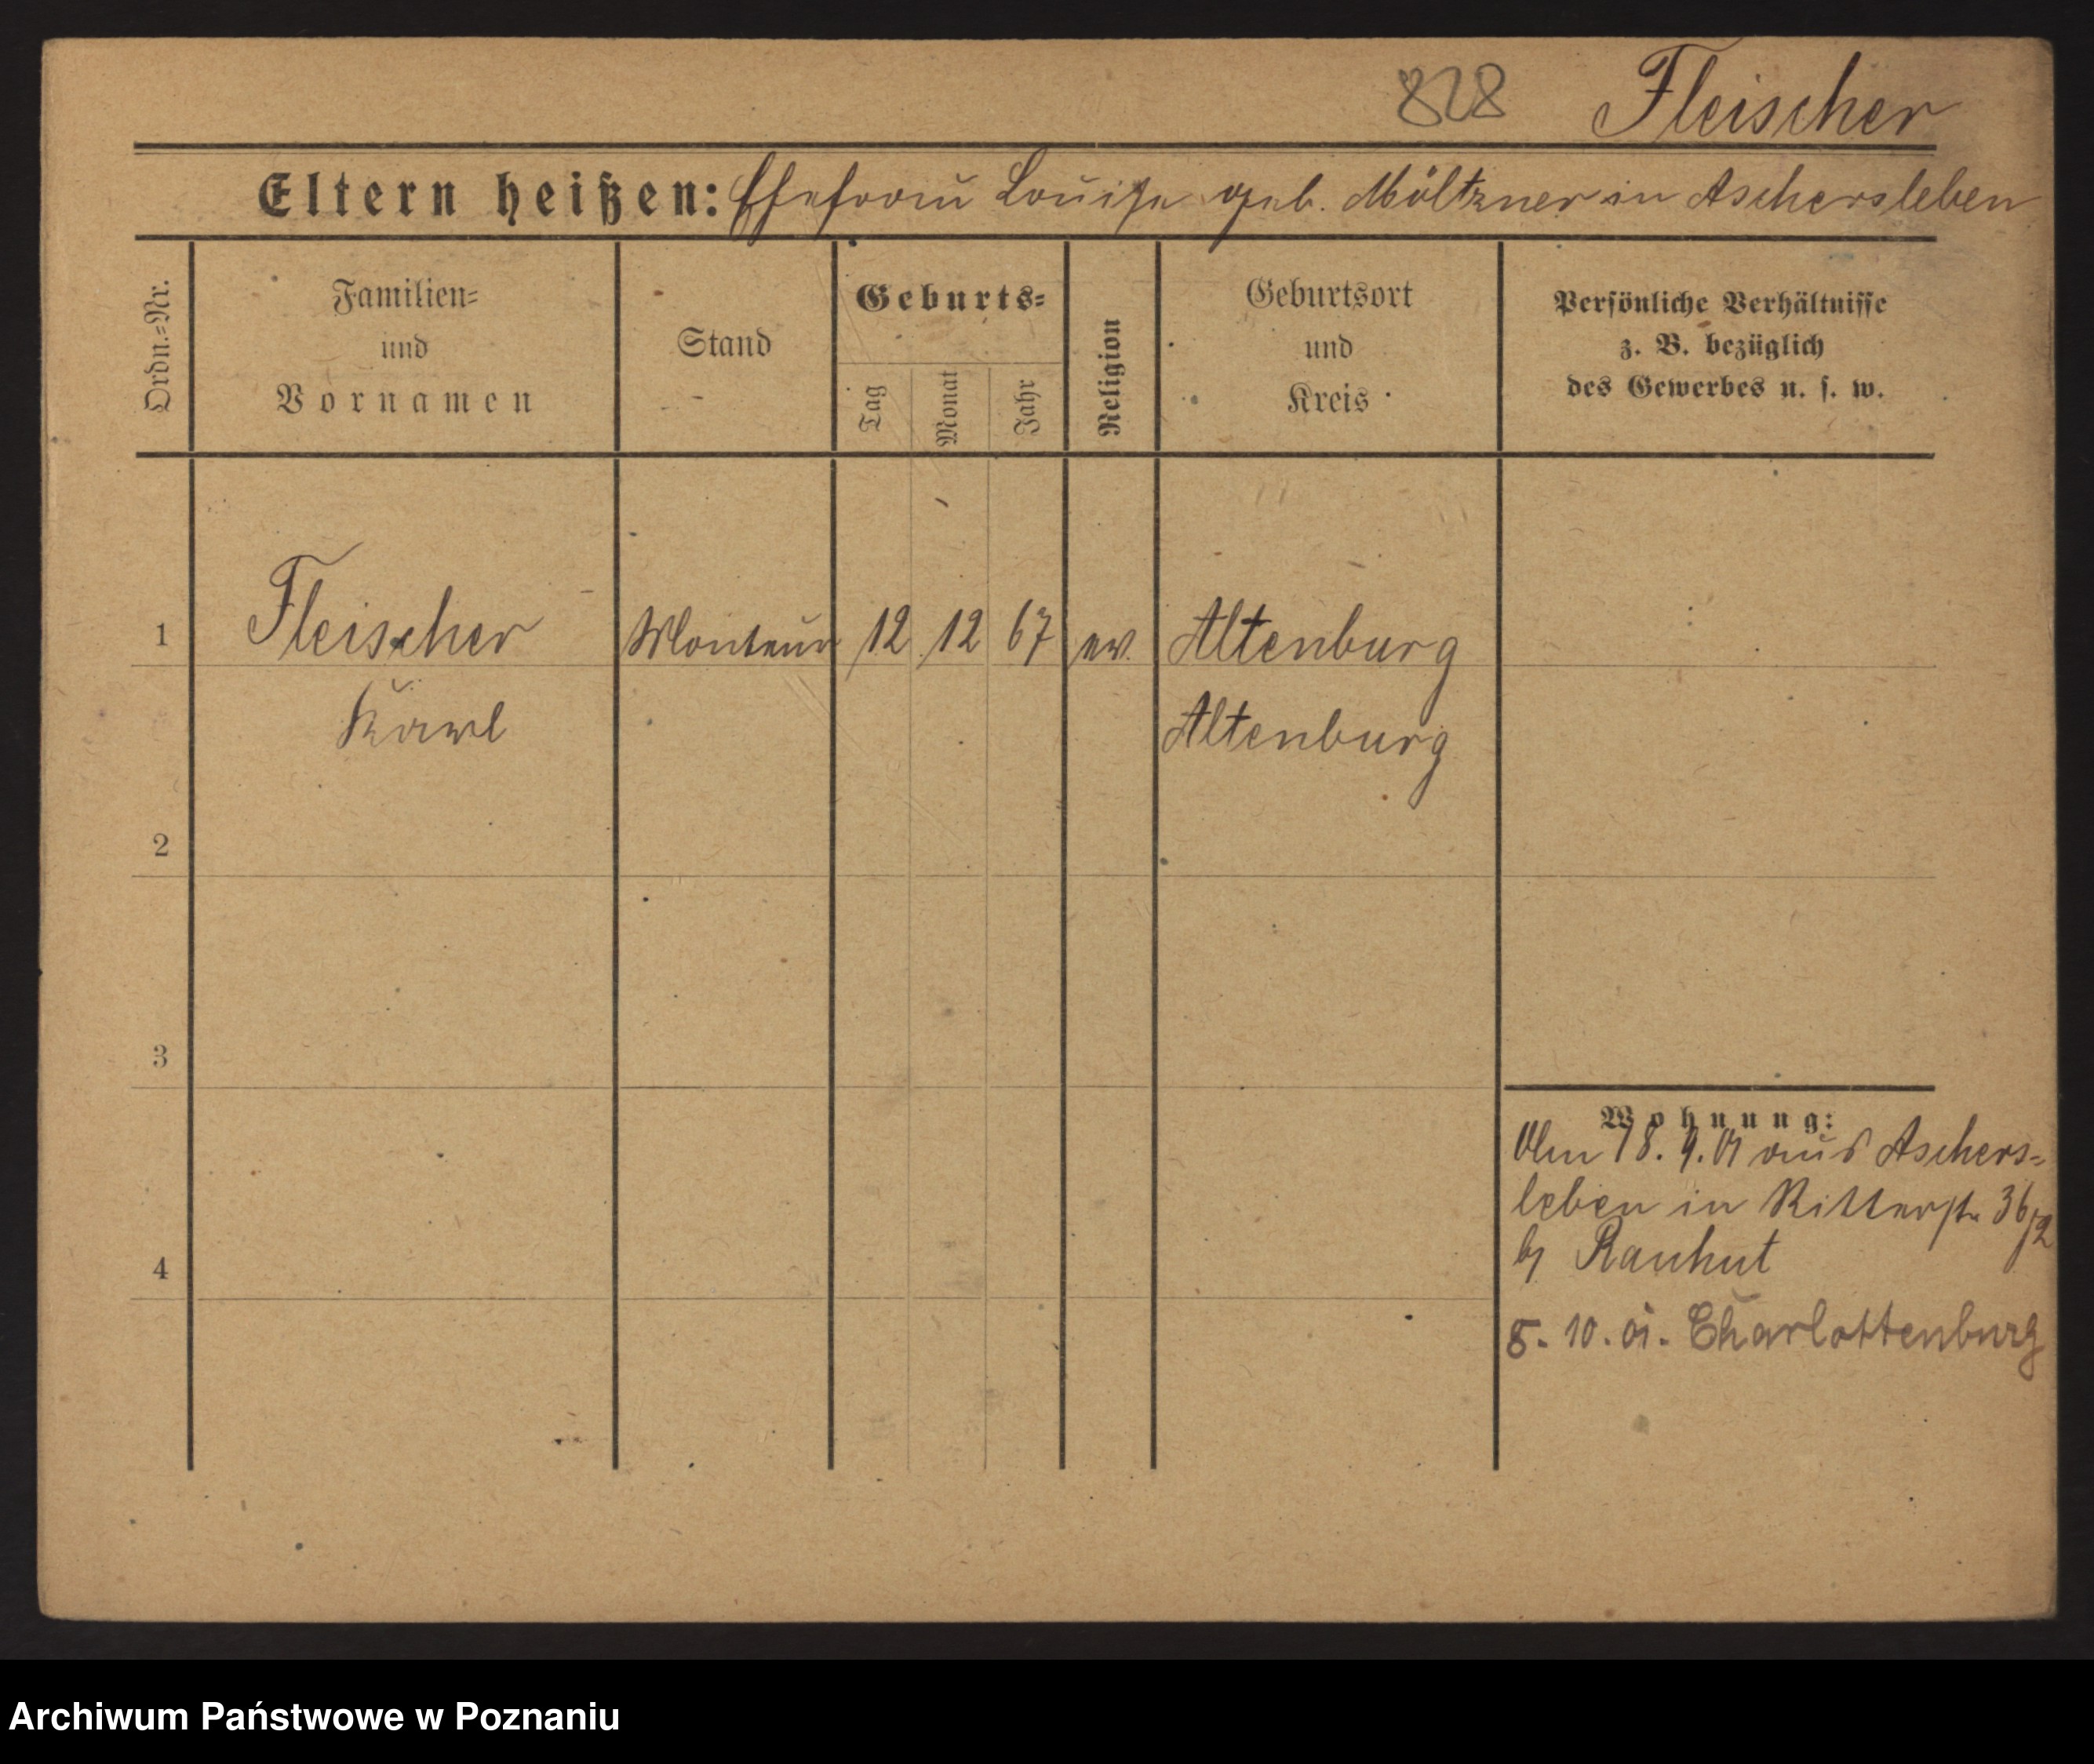 828 Fleischer
Eltern heißen: Ehefrau Louise geb. Möltzner in Aschersleben
Ordn.=Nr.
Familien=
und
Vornamen
Stand
Geburts=
Tag
Monat
Jahr
Religion
Geburtsort
und
Kreis
Persönliche Verhältnisse
z. B. bezüglich
des Gewerbes u. s. w.
1 Fleischer Monteur 12 12 67 ev. Altenburg
Karl Altenburg
2
3
4
Wohnung:
18. 9. 01 aus Aschers=
leben in Ritterstr 36/2
b/ Rauhut
8. 10. 01. Charlottenburg
Archiwum Państwowe w Poznaniu